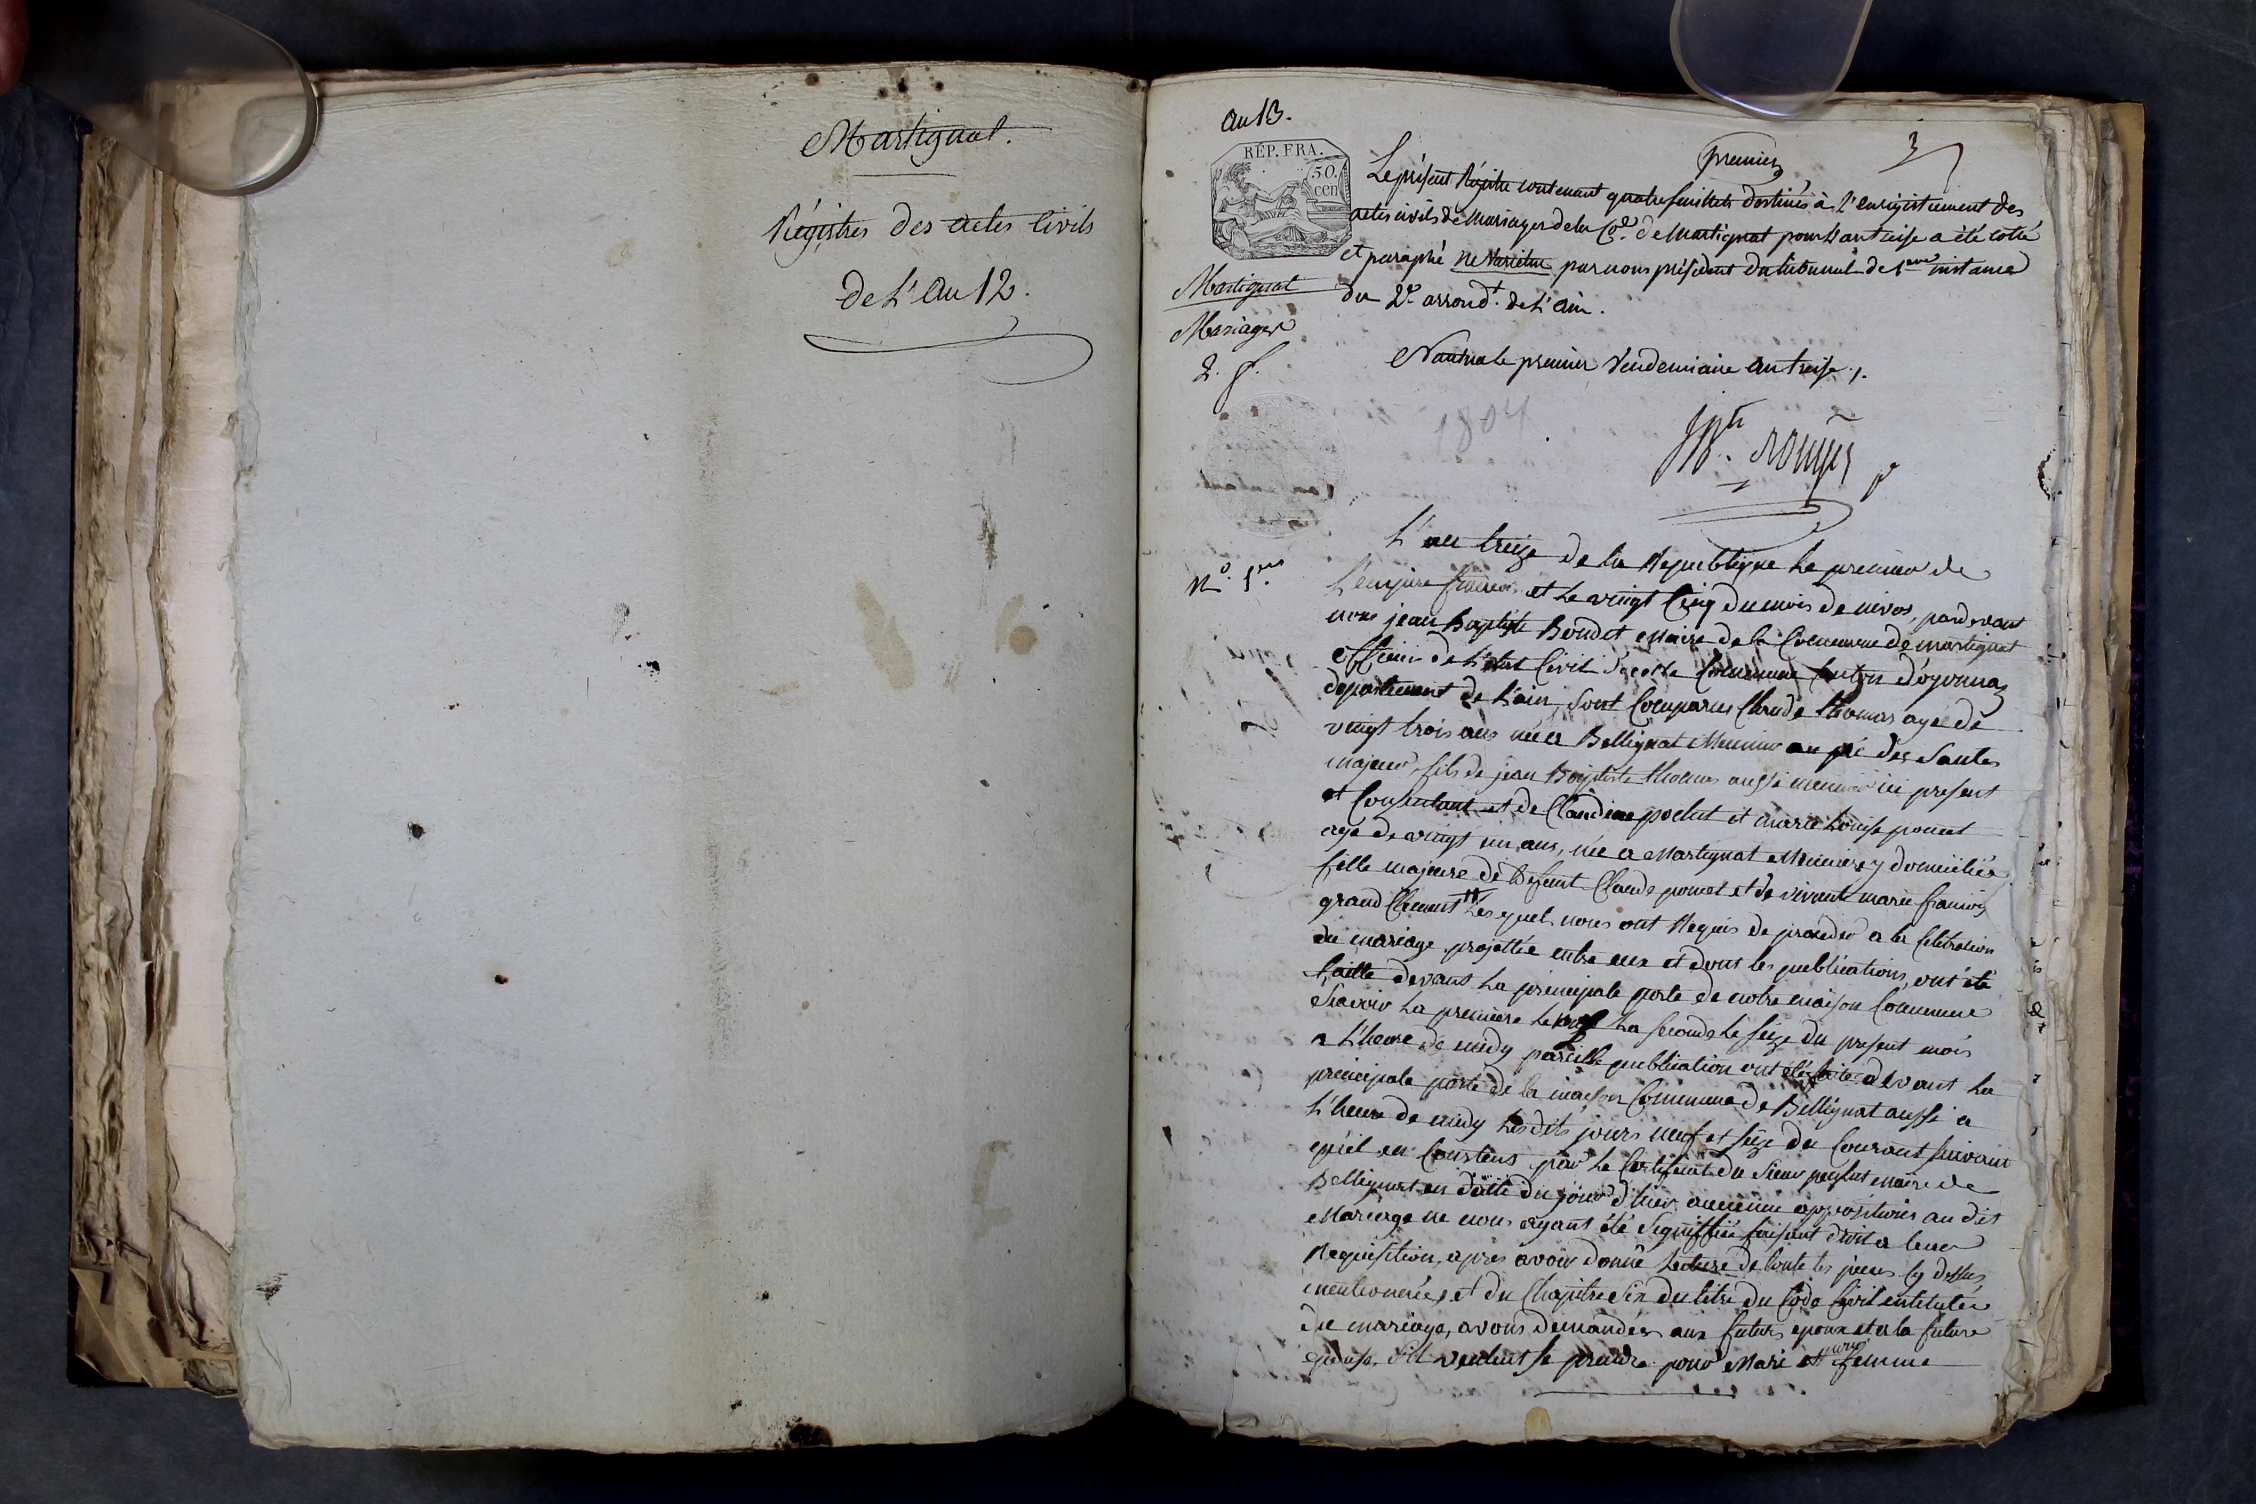 Martignat.
Régistres des actes Civils
de L'an 12.
an 13.
RÉP. FRA.
50.
cen
premier
3
Martignat
Mariages
2. f.
Le présent Régître contenant quatre feuillets destinés à l'enregistrement des
actes civils de Mariages de la Cne. de Martignat pour l'an treise a été cotté
et paraphé Ne Varietur par nous président du tribunal de 1ere instance
du 2e. arrondt. de L'ain.
Nantua le premier Vendemiaire an treise ./.
1804
N° 1er
L'an treize de la Republique Le premier de
L'empire francois et le vingt Cinq du mois de nivos, pardevant
nous jean Baptiste Boudet Maire de la Commune de martignat
officier de L'etat Civil de cette Commune Canton d'oyonnaz
departement de L'ain, sont Comparus Claude thomas agée de
vingt trois ans né a Bellignat Meunier au pié des Saules
majeur, fils de jean Baptiste thomas aussi meunier ici present
et Consentant et de Claudine poclet et marie Louise pomet
age de vingt un ans, née a Martignat Meuniere y domiciliée
fille majeure de défunt Claude pomet et de vivante marie francoise
grand Clement Lesquels nous ont Requis de proceder a la Celebration
du mariage projettée entre eux et dont les publications, ont été
faitte devans La principale porte de notre maison Commune
Scavoir La premiere Le neuf La seconde Le seize du present mois
a L'heure de midy pareille publication ont été faite devant La
principale porte de la maison Commune de Bellignat aussi a
L'heure de midy Lesdits jours neuf et seize du Courant suivant
qu'il en Constens par Le Certificat du Sieur maire de
Bellignat en datte du jour d'hier aucunne oppositions au dit
Mariage ne nous ayant été Signiffiée faisant droit a leur
Requisition, apres avoir donné Lecture de toute les pieces cy dessus
mentionnées, et du Chapitre Six du titre du Code Civil entitulée
du mariage, avons demandés aux futurs epoux et a la future
epouse, s'il veulent se prendre pour Mari et pour femme